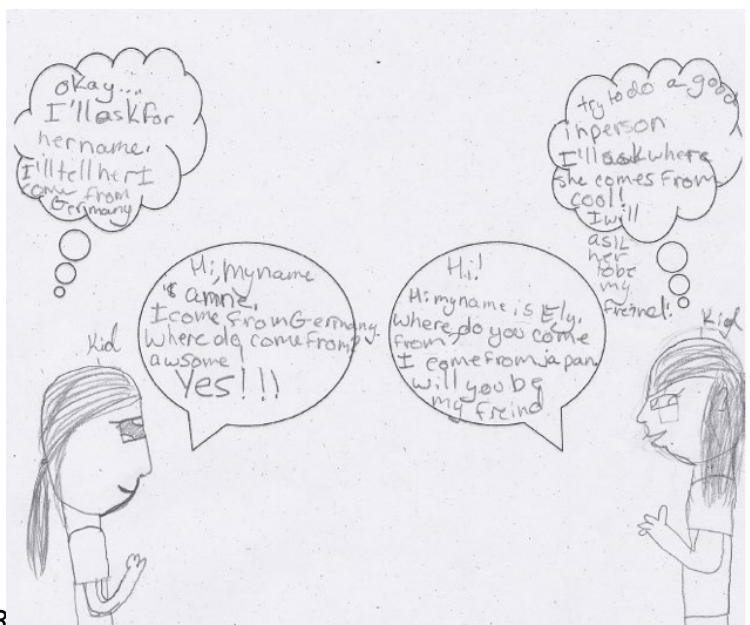 okay...
I'll ask for
her name.
I'll tell her I
come from
Germany
try to do a good
inperson
I'll ask where
she comes from
cool!
I will
ask
her
to be
my
freind!
Hi, my name
is amne.
I come from Germany.
where do come from?
awsome!
Yes!!!
Hi!
Hi my name is Ely.
where do you come
from?
I come from japan
will you be
my freind
Kid
Kid
R